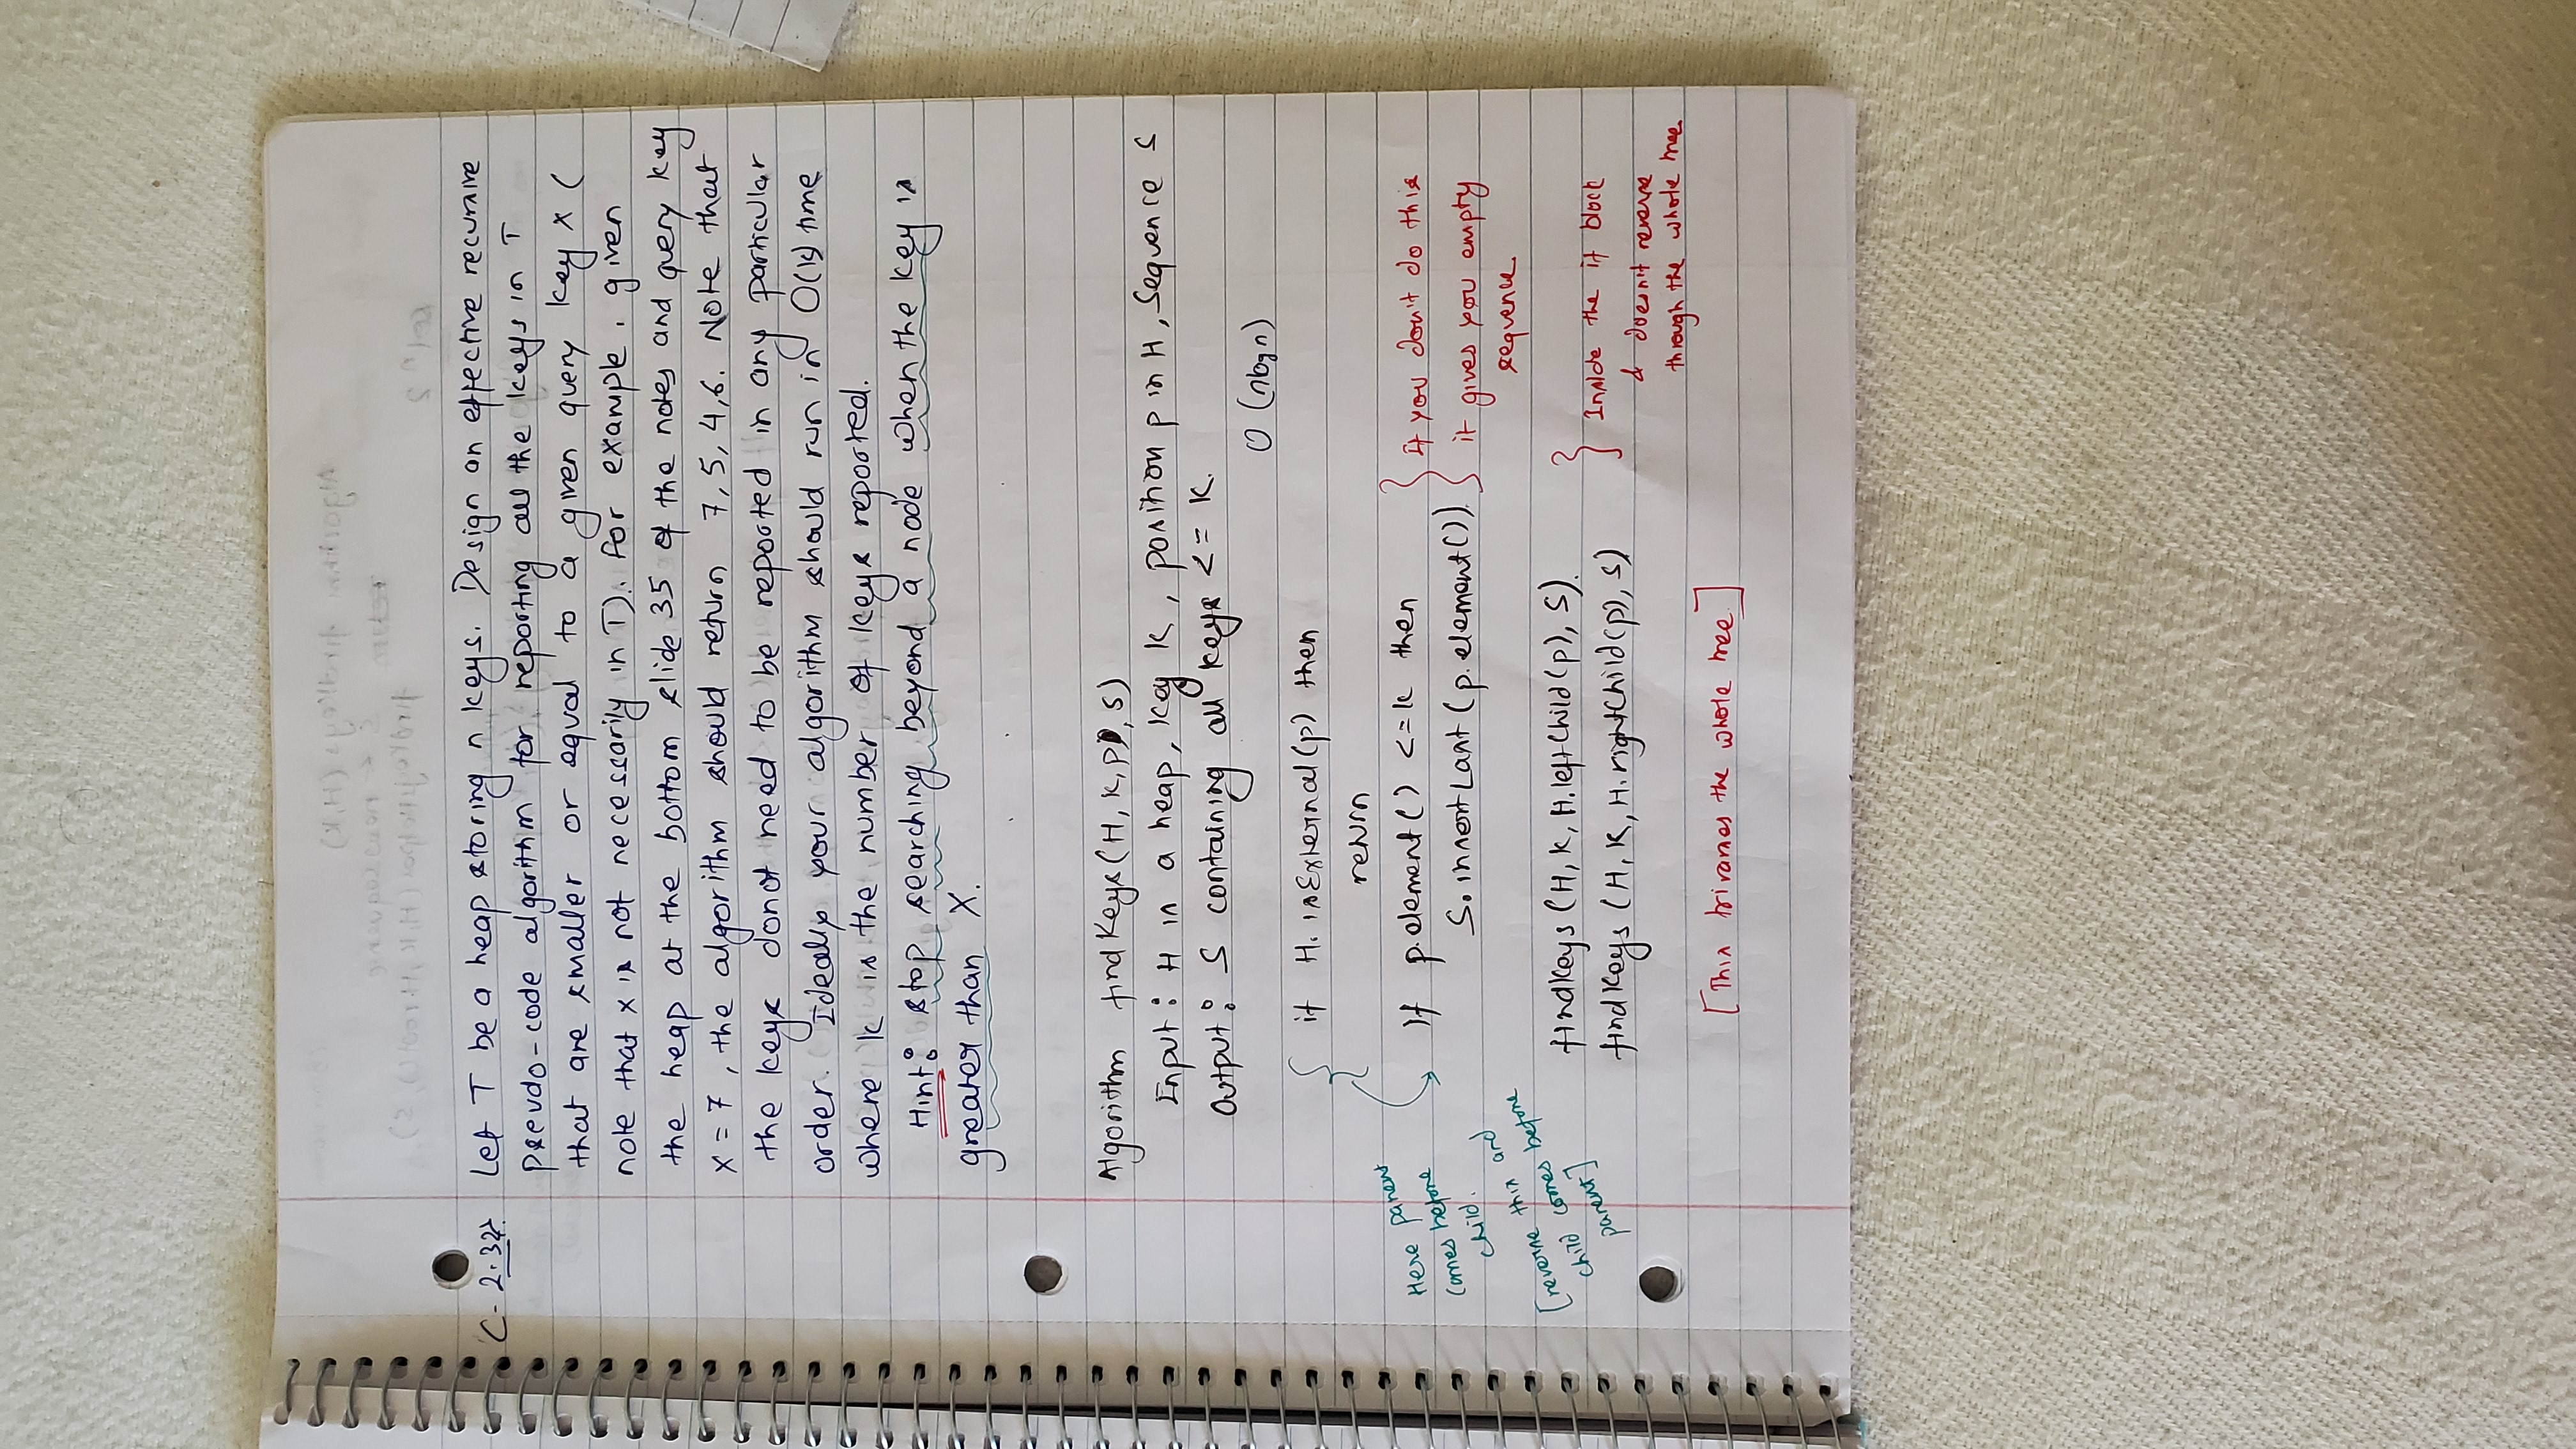 C-2.32
Let T be a heap storing n keys. Design an effective recursive
pseudo-code algorithm for reporting all the keys in T
that are smaller or equal to a given query key x (
note that x is not necessarily in T). For example, given
the heap at the bottom slide 35 of the notes and query key
x = 7, the algorithm should return 7, 5, 4, 6. Note that
the keys donot need to be reported in any particular
order. Ideally your algorithm should run in O(k) time
where k is the number of keys reported.
Hint: stop searching beyond a node when the key is
greater than X.
Algorithm findKeys(H, K, p, S)
Input: H is a heap, key K, position p in H, Sequence S
Output: S containing all keys <= K.
O(nlogn)
if H.isExternal(p) then
return
If p.element() <= k then
S.insertLast(p.element())
If you don't do this
it gives you empty
sequence
Here parent
comes before
child.
[reverse this and
child comes before
parent]
findKeys(H, K, H.leftChild(p), S).
findKeys(H, K, H.rightChild(p), S)
Inside the if block
& doesn't reverse
through the whole tree
[This trivarses the whole tree.]
Algorithm findKeys(H,K)
S ← new sequence